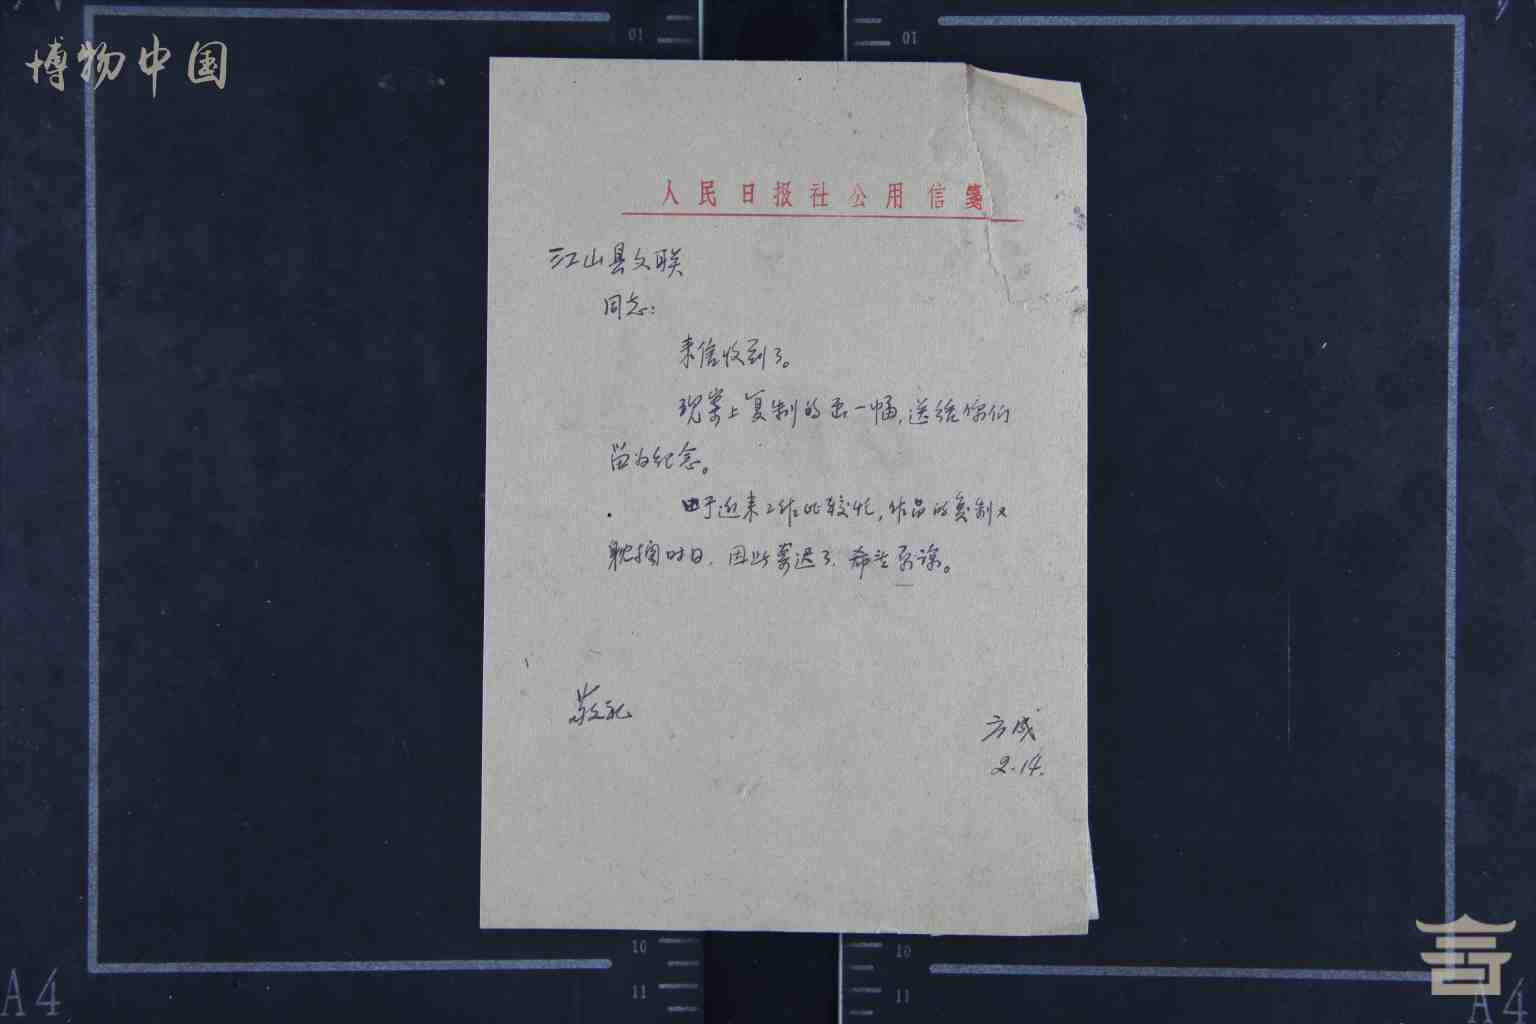 博物中国
10
10
人民日报社公用信笺
江山县文联
同志:
来信收到了。
现寄上复制的画一幅,送给你们
留为纪念。
由于近来工作比较忙,作品的复制又
耽搁时日,因此寄迟了,希望原谅。
敬礼
方成
2.14.
10
10
11
11
A4
A4